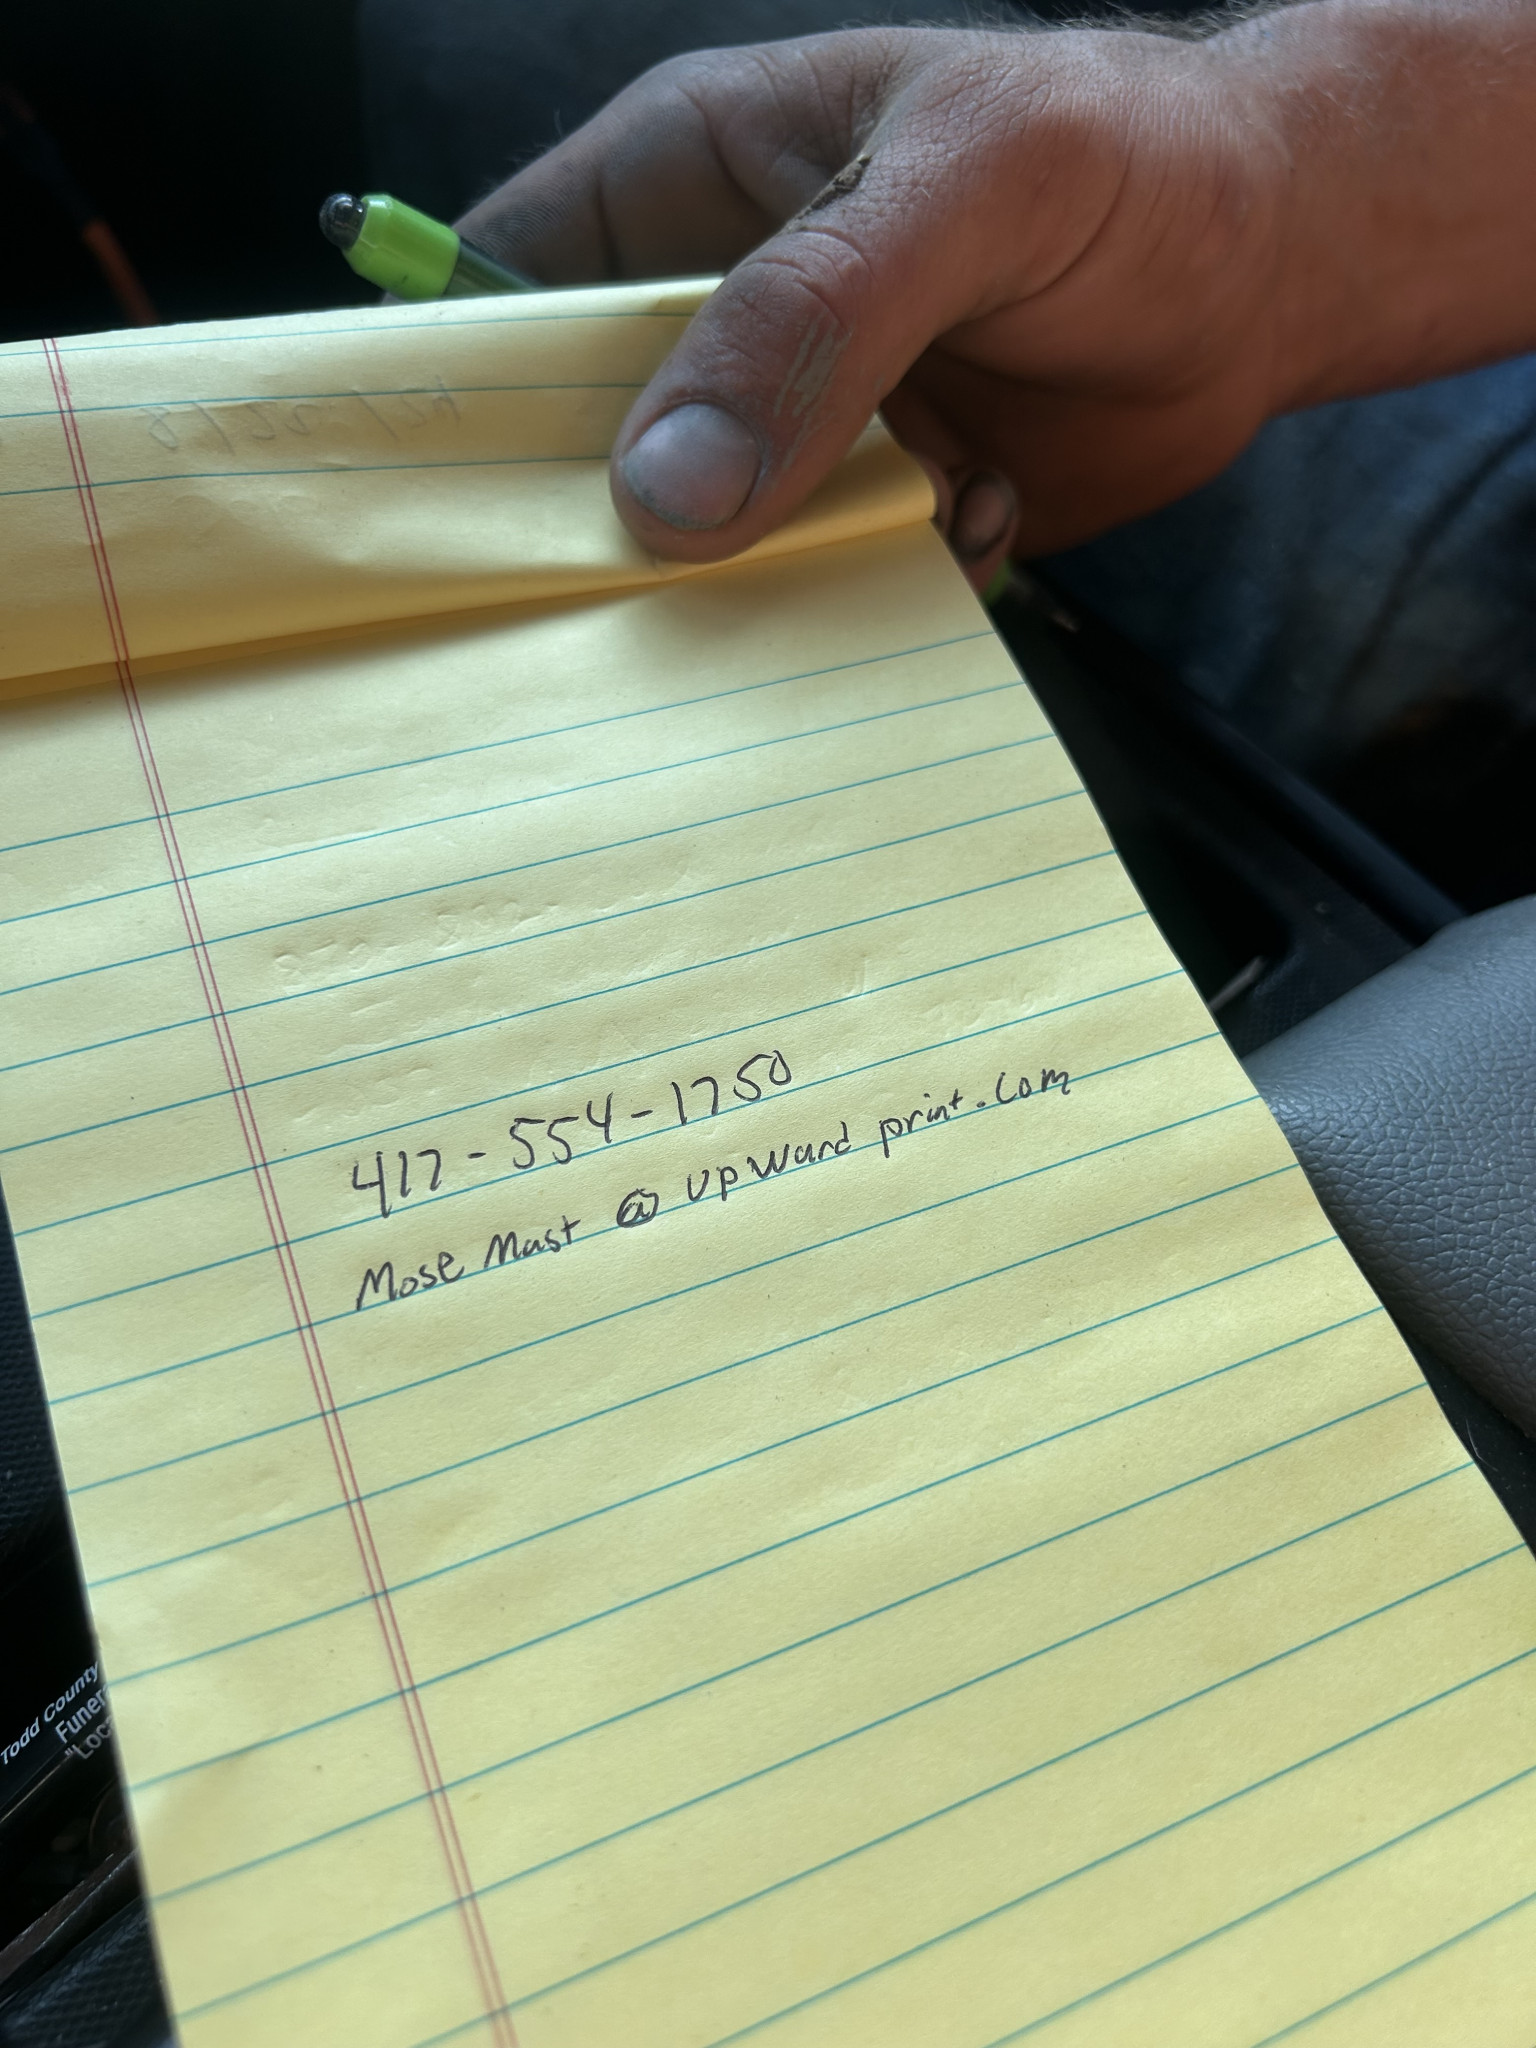 417-554-1750
Mose Mast @ upward print.com
Todd County
Funer
"Loca